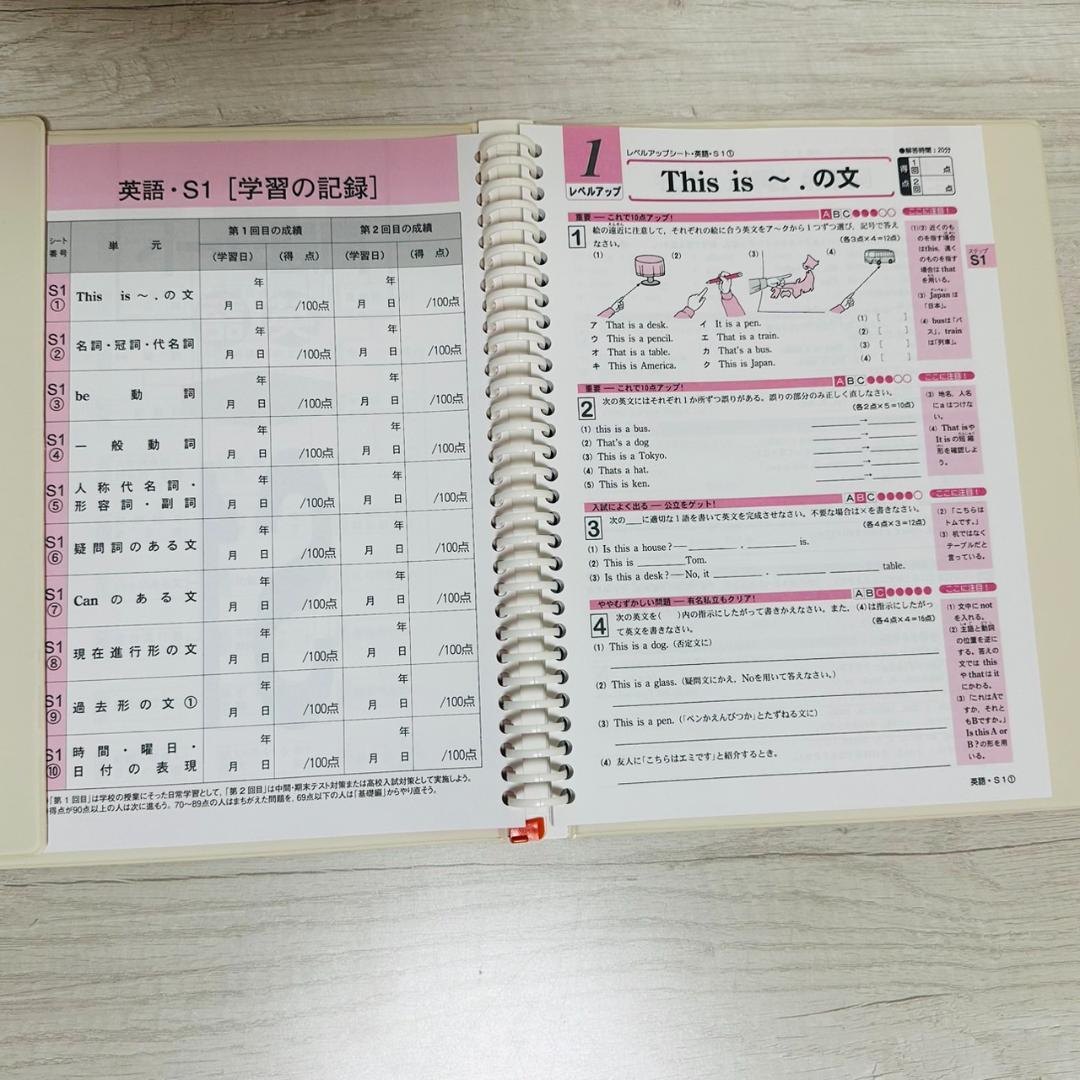 英語・S1 [学習の記録]
シート番号 単元 第1回目の成績 第2回目の成績
(学習日) (得 点) (学習日) (得 点)
S1① This is ～.の文 年 月 日 /100点 年 月 日 /100点
S1② 名詞・冠詞・代名詞 年 月 日 /100点 年 月 日 /100点
S1③ be動詞 年 月 日 /100点 年 月 日 /100点
S1④ 一般動詞 年 月 日 /100点 年 月 日 /100点
S1⑤ 人称代名詞・形容詞・副詞 年 月 日 /100点 年 月 日 /100点
S1⑥ 疑問詞のある文 年 月 日 /100点 年 月 日 /100点
S1⑦ Canのある文 年 月 日 /100点 年 月 日 /100点
S1⑧ 現在進行形の文 年 月 日 /100点 年 月 日 /100点
S1⑨ 過去形の文① 年 月 日 /100点 年 月 日 /100点
S1⑩ 時間・曜日・日付の表現 年 月 日 /100点 年 月 日 /100点
「第1回目」は学校の授業にそった日常学習として,「第2回目」は中間・期末テスト対策または高校入試対策として実施しよう。
得点が90点以上の人は次に進もう。70～89点の人はまちがえた問題を,69点以下の人は「基礎編」からやり直そう。
1
レベルアップ
レベルアップシート・英語・S1①
This is ～.の文
●解答時間:20分
得点 1回 点
2回 点
ステップ
S1
重要 ― これで10点アップ! ABC
1 絵の遠近に注意して,それぞれの絵に合う英文をア～クから1つずつ選び,記号で答え
なさい。 (各3点×4=12点)
(1) (2) (3) (4)
ア That is a desk. イ It is a pen. (1) [ ]
ウ This is a pencil. エ That is a train. (2) [ ]
オ That is a table. カ That's a bus. (3) [ ]
キ This is America. ク This is Japan. (4) [ ]
ここに注目!
(1)(3) 近くのも
のを指す場合
はthis, 遠く
のものを指す
場合は that
を用いる。
(3) Japanは
「日本」。
(4) busは「バ
ス」, train
は「列車」。
重要 ― これで10点アップ! ABC
2 次の英文にはそれぞれ1か所ずつ誤りがある。誤りの部分のみ正しく直しなさい。
(各2点×5=10点)
(1) this is a bus. →
(2) That's a dog →
(3) This is a Tokyo. →
(4) Thats a hat. →
(5) This is ken. →
ここに注目!
(3) 地名, 人名
にaはつけな
い。
(4) That isや
It isの短縮
形を確認しよ
う。
入試によく出る ― 公立をゲット! ABC
3 次の＿に適切な1語を書いて英文を完成させなさい。不要な場合は×を書きなさい。
(各4点×3=12点)
(1) Is this a house? ― ＿＿, ＿＿ is.
(2) This is ＿＿ Tom.
(3) Is this a desk? ― No, it ＿＿. ＿＿ ＿＿ table.
ここに注目!
(2) 「こちらは
トムです。」
(3) 机ではなく
テーブルだと
言っている。
ややむずかしい問題 ― 有名私立もクリア! ABC
4 次の英文を( )内の指示にしたがって書きかえなさい。また,(4)は指示にしたがっ
て英文を書きなさい。 (各4点×4=16点)
(1) This is a dog. (否定文に)
(2) This is a glass. (疑問文にかえ, Noを用いて答えなさい。)
(3) This is a pen. (「ペンかえんぴつか」とたずねる文に)
(4) 友人に「こちらはエミです」と紹介するとき。
ここに注目!
(1) 文中に not
を入れる。
(2) 主語と動詞
の位置を逆に
する。答えの
文では this
や that は it
にかわる。
(3) 「これはAで
すか, それと
もBですか。」
Is this A or
B? の形を用
いる。
英語・S1①